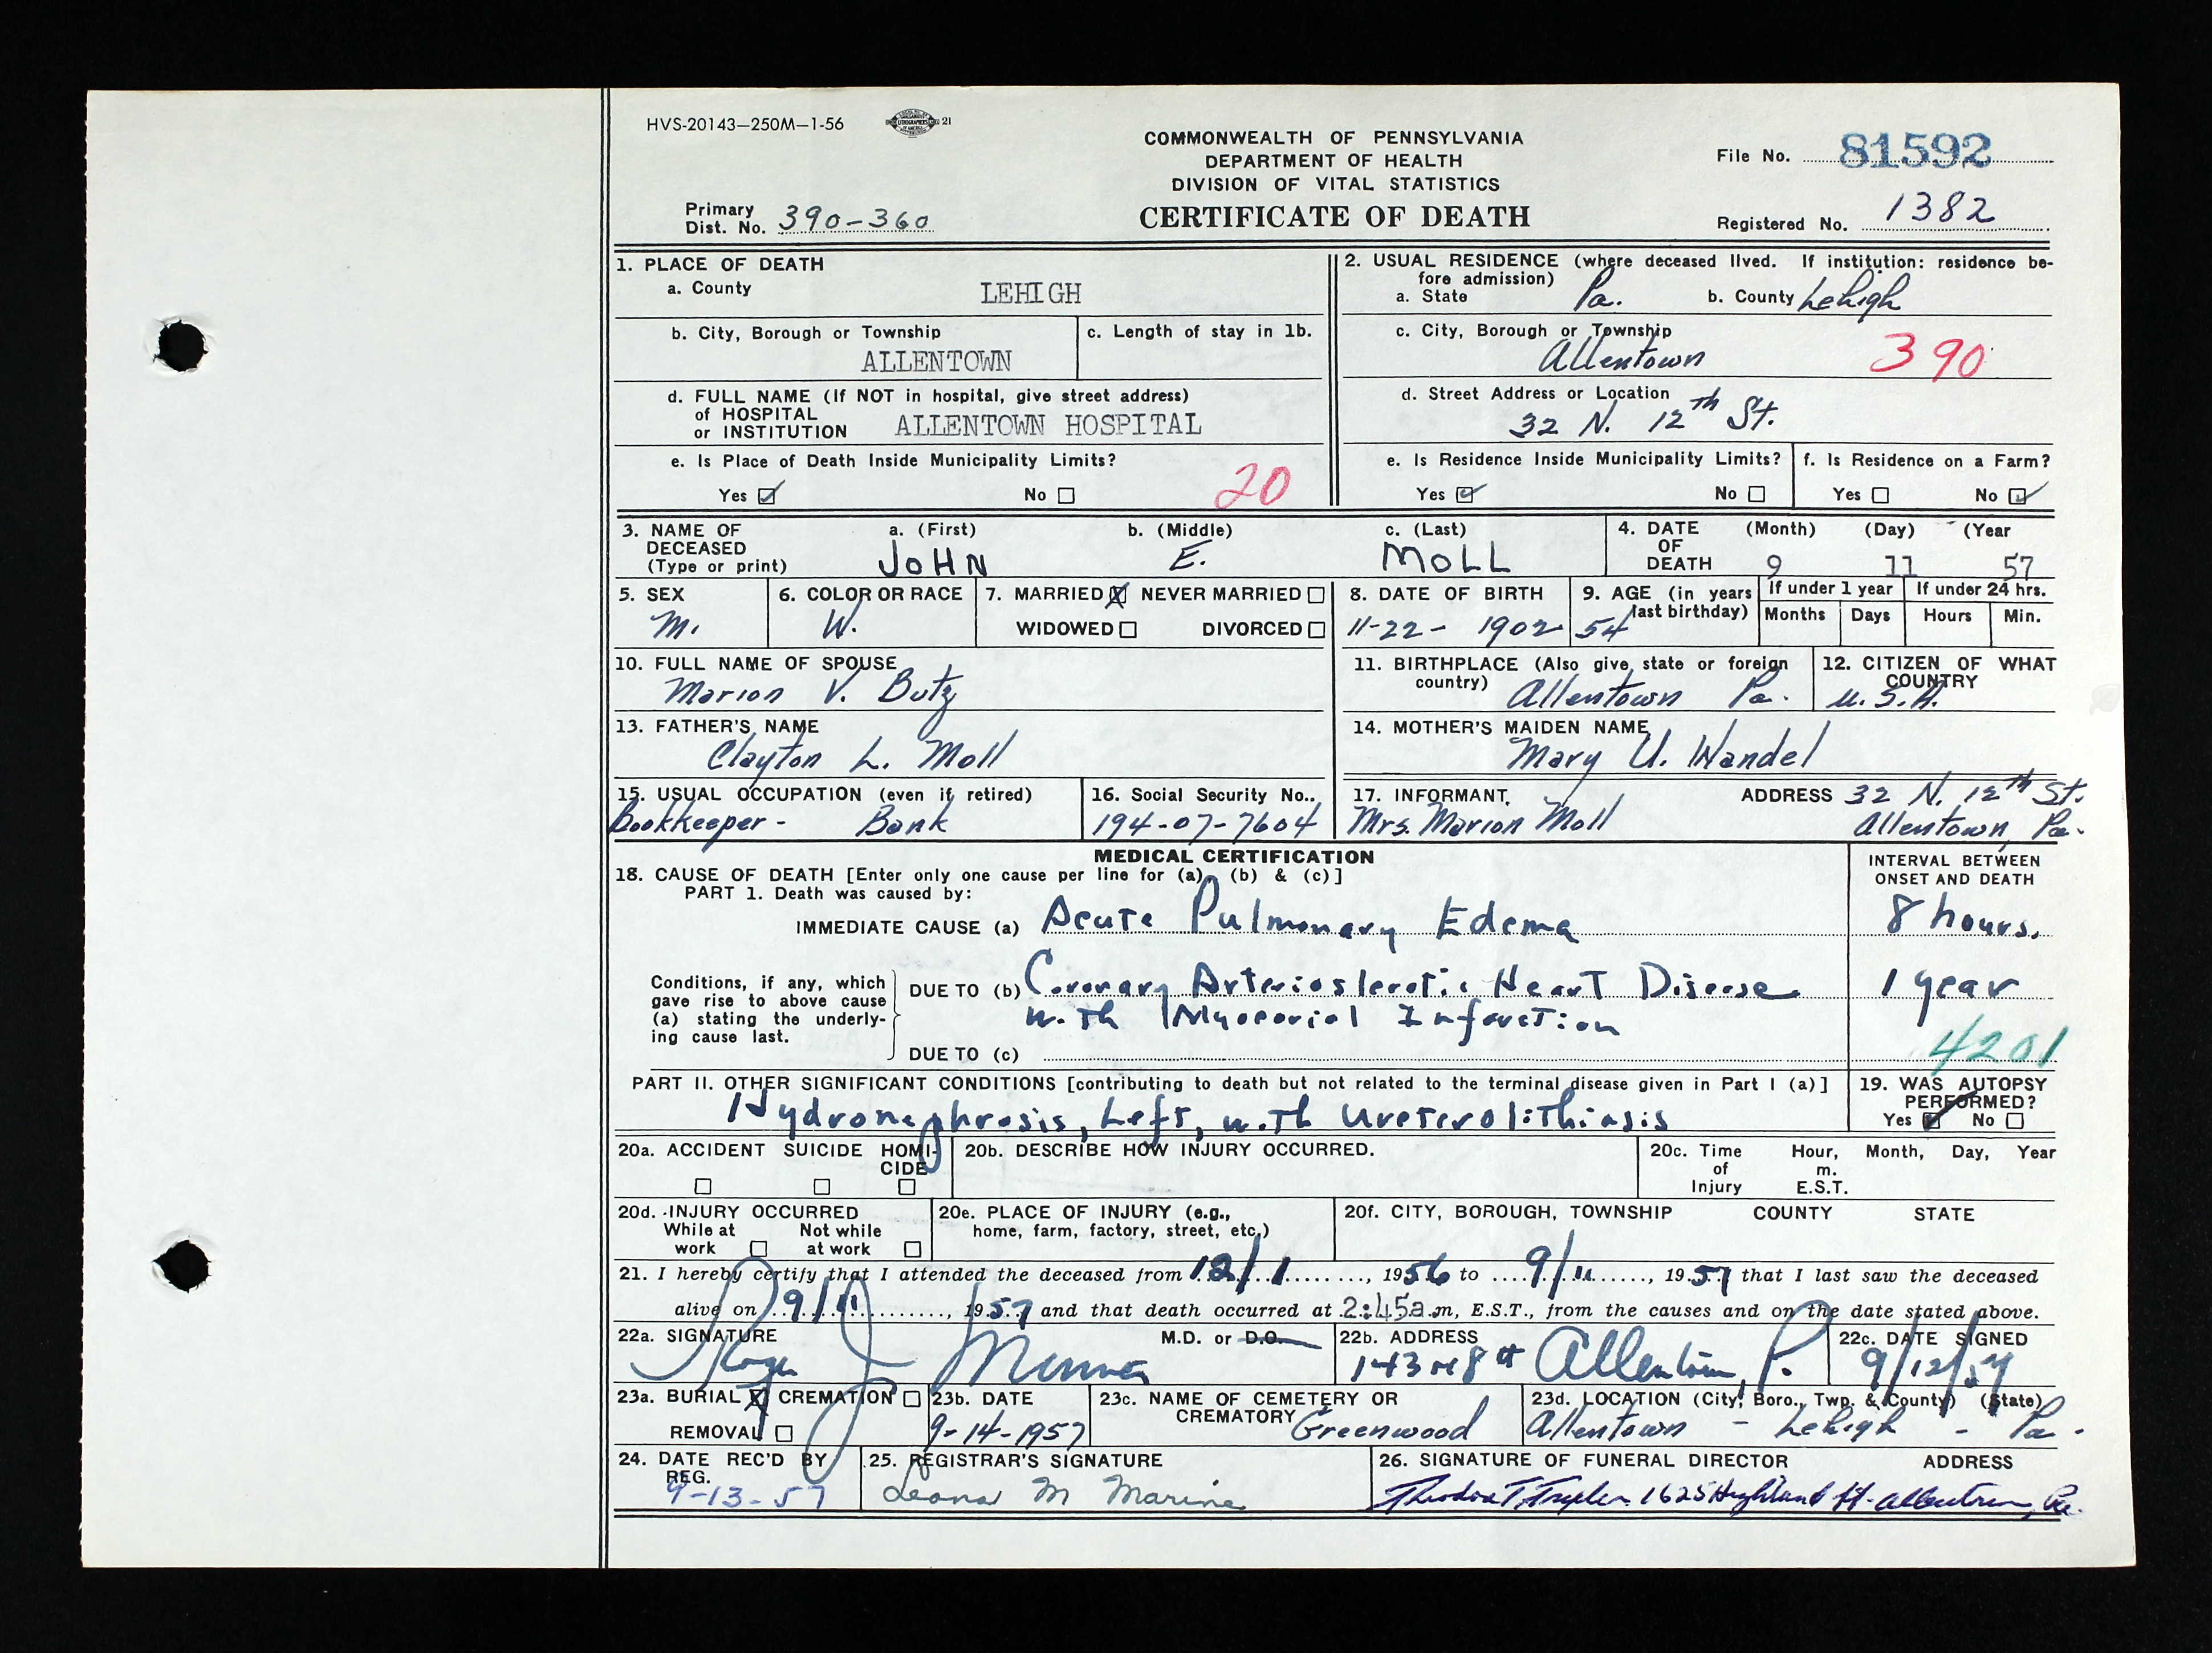 HVS-20143—250M—1-56 21
COMMONWEALTH OF PENNSYLVANIA
DEPARTMENT OF HEALTH
DIVISION OF VITAL STATISTICS
CERTIFICATE OF DEATH
File No. 81592
Primary Dist. No. 390-360
Registered No. 1382
1. PLACE OF DEATH
a. County LEHIGH
b. City, Borough or Township ALLENTOWN
c. Length of stay in 1b.
d. FULL NAME (If NOT in hospital, give street address)
of HOSPITAL
or INSTITUTION ALLENTOWN HOSPITAL
e. Is Place of Death Inside Municipality Limits?
Yes ☑ No ☐ 20
2. USUAL RESIDENCE (where deceased lived. If institution: residence be-
fore admission)
a. State Pa. b. County Lehigh
c. City, Borough or Township
Allentown 390
d. Street Address or Location
32 N. 12th St.
e. Is Residence Inside Municipality Limits?
Yes ☑ No ☐
f. Is Residence on a Farm?
Yes ☐ No ☑
3. NAME OF DECEASED (Type or print)
a. (First) b. (Middle) c. (Last)
JOHN E. MOLL
4. DATE OF DEATH (Month) (Day) (Year
9 11 57
5. SEX
M.
6. COLOR OR RACE
W.
7. MARRIED ☒ NEVER MARRIED ☐
WIDOWED ☐ DIVORCED ☐
8. DATE OF BIRTH
11-22-1902
9. AGE (in years last birthday)
54
If under 1 year If under 24 hrs.
Months Days Hours Min.
10. FULL NAME OF SPOUSE
Marion V. Butz
11. BIRTHPLACE (Also give state or foreign country)
Allentown Pa.
12. CITIZEN OF WHAT COUNTRY
U.S.A.
13. FATHER'S NAME
Clayton L. Moll
14. MOTHER'S MAIDEN NAME
Mary U. Wandel
15. USUAL OCCUPATION (even if retired)
Bookkeeper - Bank
16. Social Security No..
194-07-7604
17. INFORMANT
Mrs. Marion Moll
ADDRESS 32 N. 12th St.
Allentown, Pa.
MEDICAL CERTIFICATION
18. CAUSE OF DEATH [Enter only one cause per line for (a), (b) & (c)]
PART 1. Death was caused by:
INTERVAL BETWEEN
ONSET AND DEATH
IMMEDIATE CAUSE (a) Acute Pulmonary Edema 8 hours.
Conditions, if any, which
gave rise to above cause
(a) stating the underly-
ing cause last.
DUE TO (b) Coronary Arteriosclerotic Heart Disease 1 year
with Myocorial Infarction
DUE TO (c)
4201
PART II. OTHER SIGNIFICANT CONDITIONS [contributing to death but not related to the terminal disease given in Part I (a)]
Hydronephrosis, Left, with Ureterolithiasis
19. WAS AUTOPSY PERFORMED?
Yes ☑ No ☐
20a. ACCIDENT SUICIDE HOMI-
CIDE
20b. DESCRIBE HOW INJURY OCCURRED.
20c. Time of Injury Hour, Month, Day, Year
m.
E.S.T.
20d. INJURY OCCURRED
While at work ☐ Not while at work ☐
20e. PLACE OF INJURY (e.g.,
home, farm, factory, street, etc.)
20f. CITY, BOROUGH, TOWNSHIP COUNTY STATE
21. I hereby certify that I attended the deceased from 12/1, 1956 to 9/11, 1957 that I last saw the deceased
alive on 9/11, 1957 and that death occurred at 2:45a.m, E.S.T., from the causes and on the date stated above.
22a. SIGNATURE M.D. or D.O.
22b. ADDRESS
143 N 8th Allentown, P.
22c. DATE SIGNED
9/12/57
23a. BURIAL ☒ CREMATION ☐
REMOVAL ☐
23b. DATE
9-14-1957
23c. NAME OF CEMETERY OR
CREMATORY Greenwood
23d. LOCATION (City, Boro., Twp. & County) (State)
Allentown - Lehigh - Pa.
24. DATE REC'D BY REG.
9-13-57
25. REGISTRAR'S SIGNATURE
Leona M Marine
26. SIGNATURE OF FUNERAL DIRECTOR ADDRESS
1625 Highland St. Allentown, Pa.